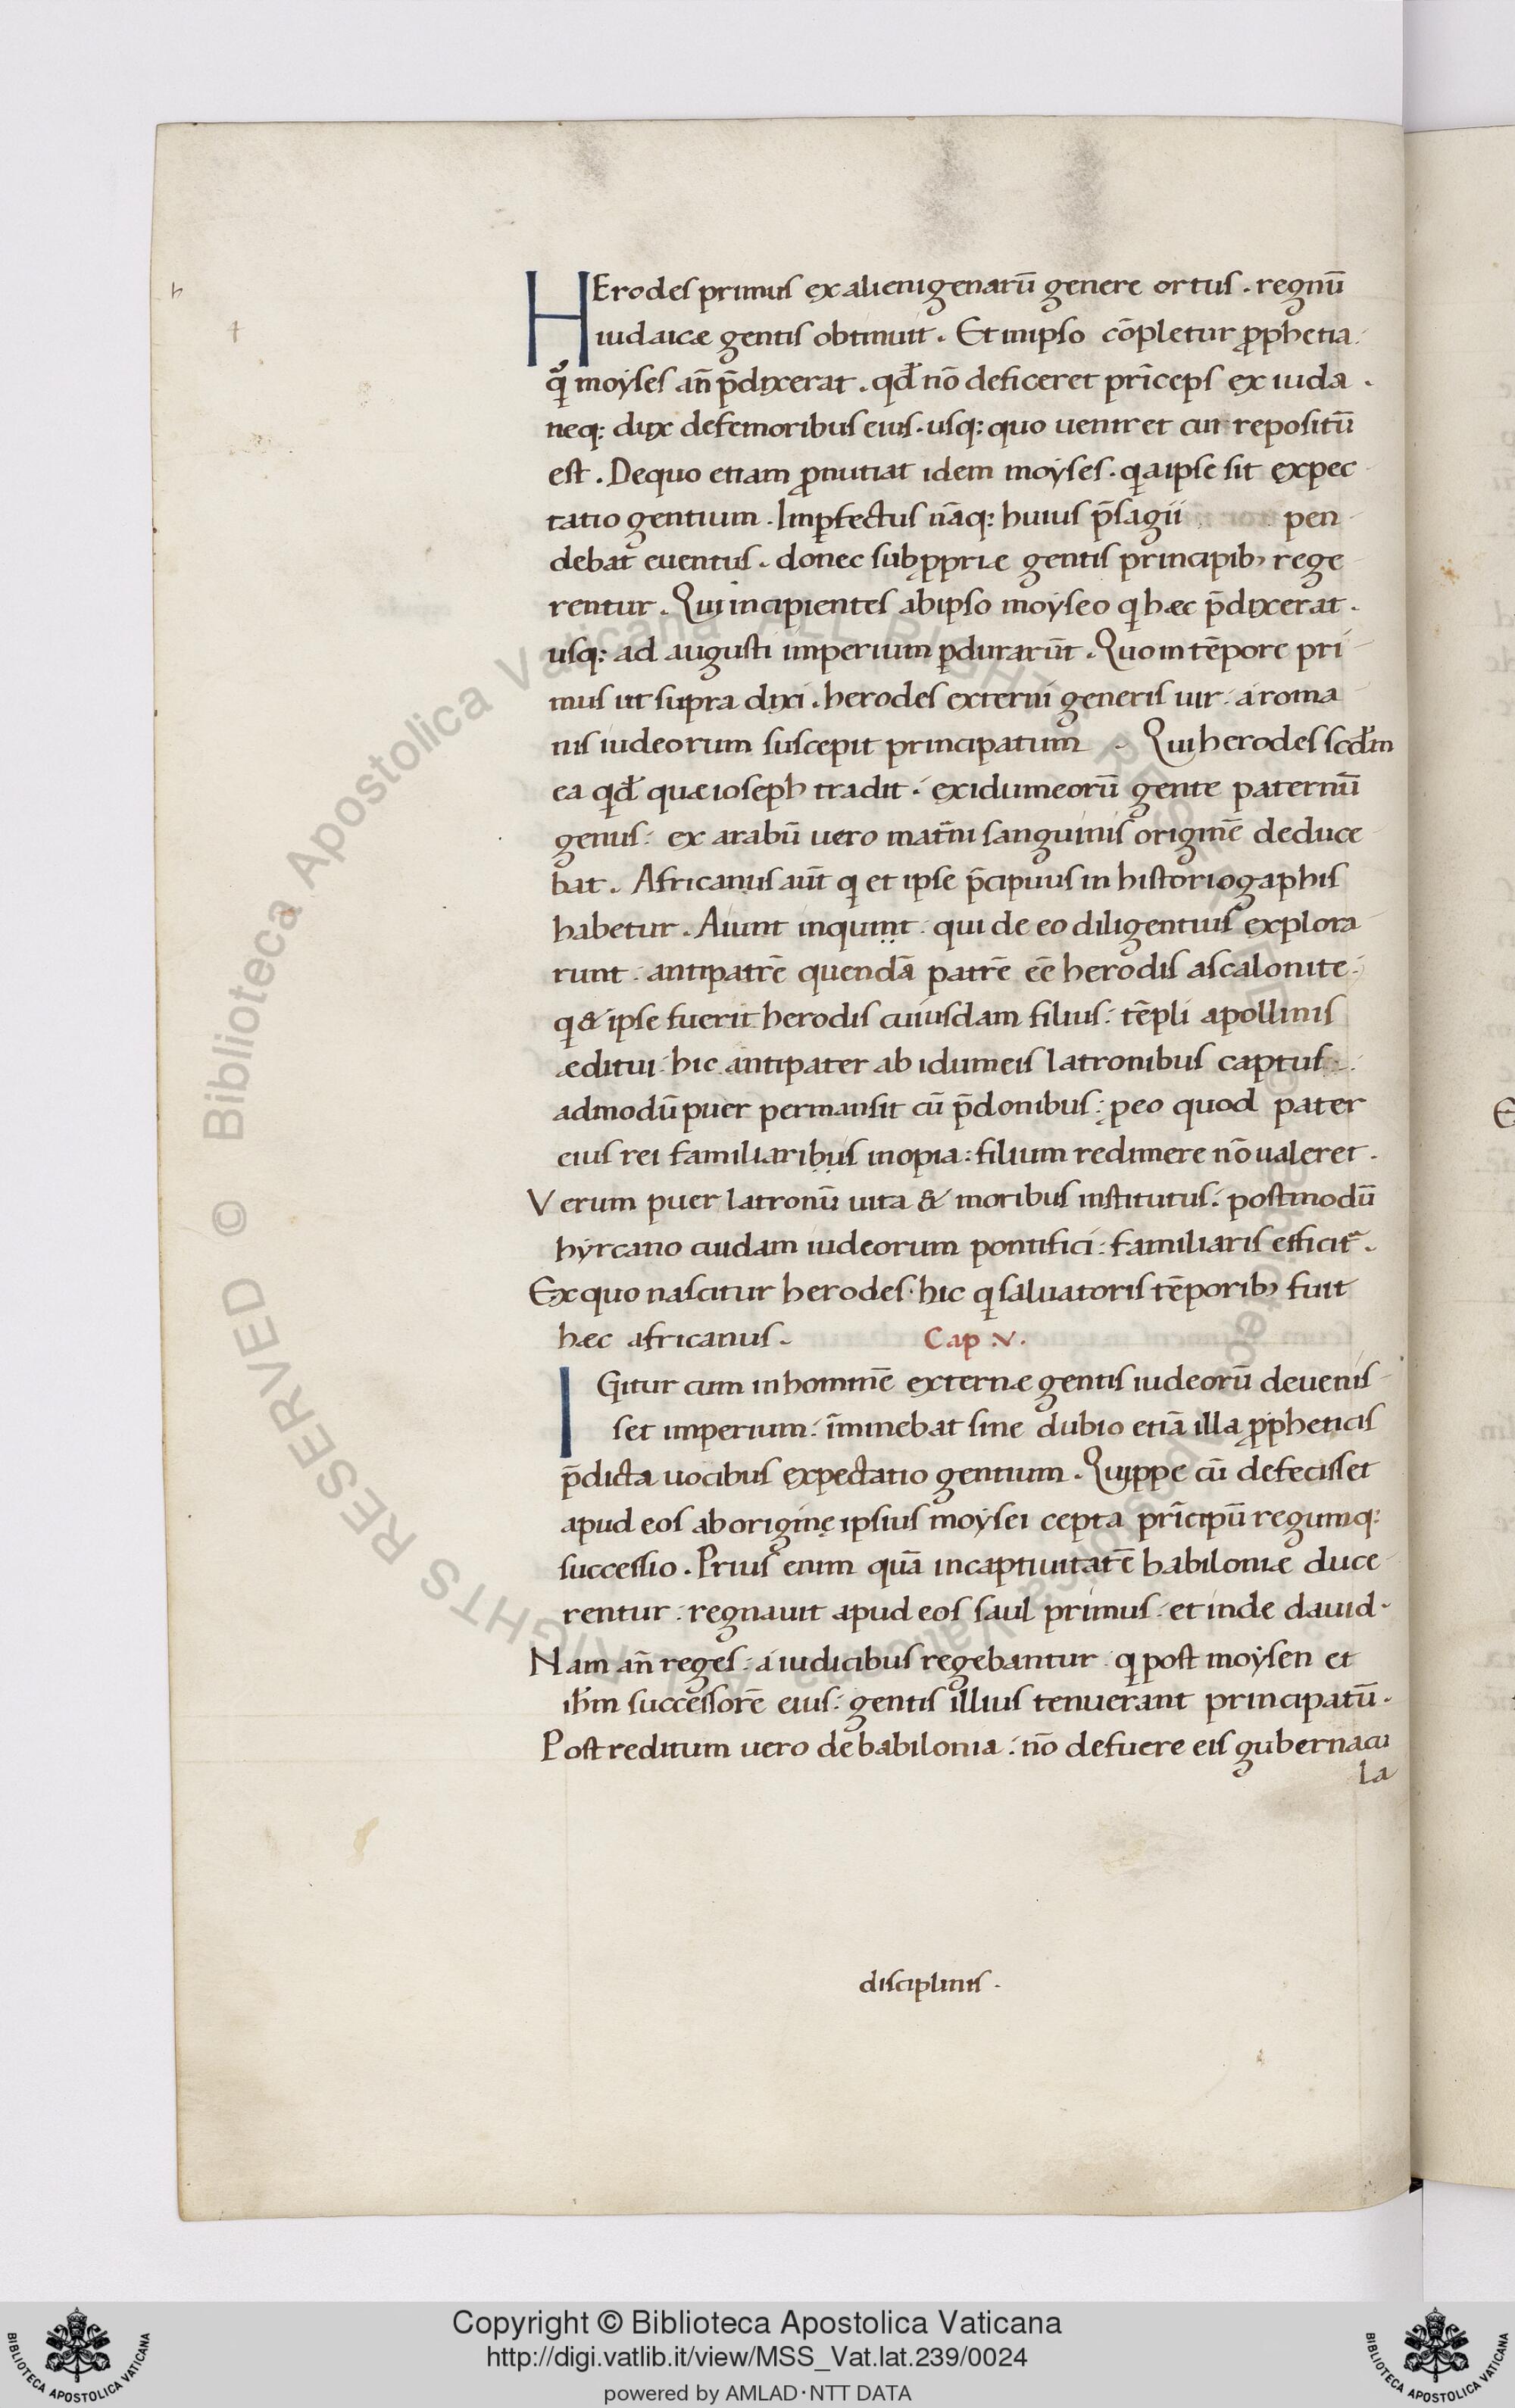 h
HErodes primus ex alienigenarū genere ortus . regnū
iudaicæ gentis obtinuit . Et inipso cōpletur ꝓphetia .
qͥ moẏses añ p̄dixerat . qđ nō deficeret prīceps ex iuda .
neq; dux defemoribus eius . usq; quo ueniret cui repositū
est . Dequo etiam ꝓnūtiat idem moẏses . qa ipse sit expec
tatio gentium . Imꝑfectus nāq; huius p̄sagii pen
debat euentus . donec sub ꝓpriæ gentis principibꝰ rege
rentur . Qui incipientes abipso moẏseo q hæc p̄dixerat .
usq; ad augusti imperium ꝑdurarūt . Quo in tēpore pri
mus ut supra dixi . herodes externi generis uir . a roma
nis iudeorum suscepit principatum . Qui herodes scđm
ea qđ quæ ioseph tradit . ex idumeorū gente paternū
genus . ex arabū uero mat̄ni sanguinis originē deduce
bat . Africanus aūt q et ipse p̄cipuus in historiogaphis
habetur . Aiunt inquiunt . qui de eo diligentius explora
runt . antipatrē quendā patrē eē herodis ascalonite .
q & ipse fuerit herodis cuiusdam filius . tēpli apollinis
æditui . hic antipater ab idumeis latronibus captus .
admodū puer permansit cū p̄donibus . ꝓeo quod pater
eius rei familiaribus inopia : filium redimere nō ualeret .
Verum puer latronū uita & moribus institutus . postmodū
hẏrcano cuidam iudeorum pontifici : familiaris efficit᷑ .
Ex quo nascitur herodes . hic q saluatoris tēporibꝰ fuit
hæc africanus . Cap V .
IGitur cum in hominē externæ gentis iudeorū deuenis
set imperium . īminebat sine dubio etiā illa ꝓpheticis
p̄dicta uocibus expectatio gentium . Quippe cū defecisset
apud eos ab origine ipsius moẏsei cepta prīcipū regumq;
successio . Prius enim quā incaptiuitatē babiloniæ duce
rentur . regnauit apud eos saul primus . et inde dauid .
Nam añ reges . a iudicibus regebantur . q post moẏsen et
ih̄m successorē eius . gentis illius tenuerant principatū .
Post reditum uero de babilonia . nō defuere eis gubernacu
la
disciplinis .
© Biblioteca Apostolica Vaticana ALL RIGHTS RESERVED
© Biblioteca Apostolica Vaticana ALL RIGHTS RESERVED
Copyright © Biblioteca Apostolica Vaticana
http://digi.vatlib.it/view/MSS_Vat.lat.239/0024
powered by AMLAD·NTT DATA
BIBLIOTECA APOSTOLICA VATICANA
BIBLIOTECA APOSTOLICA VATICANA